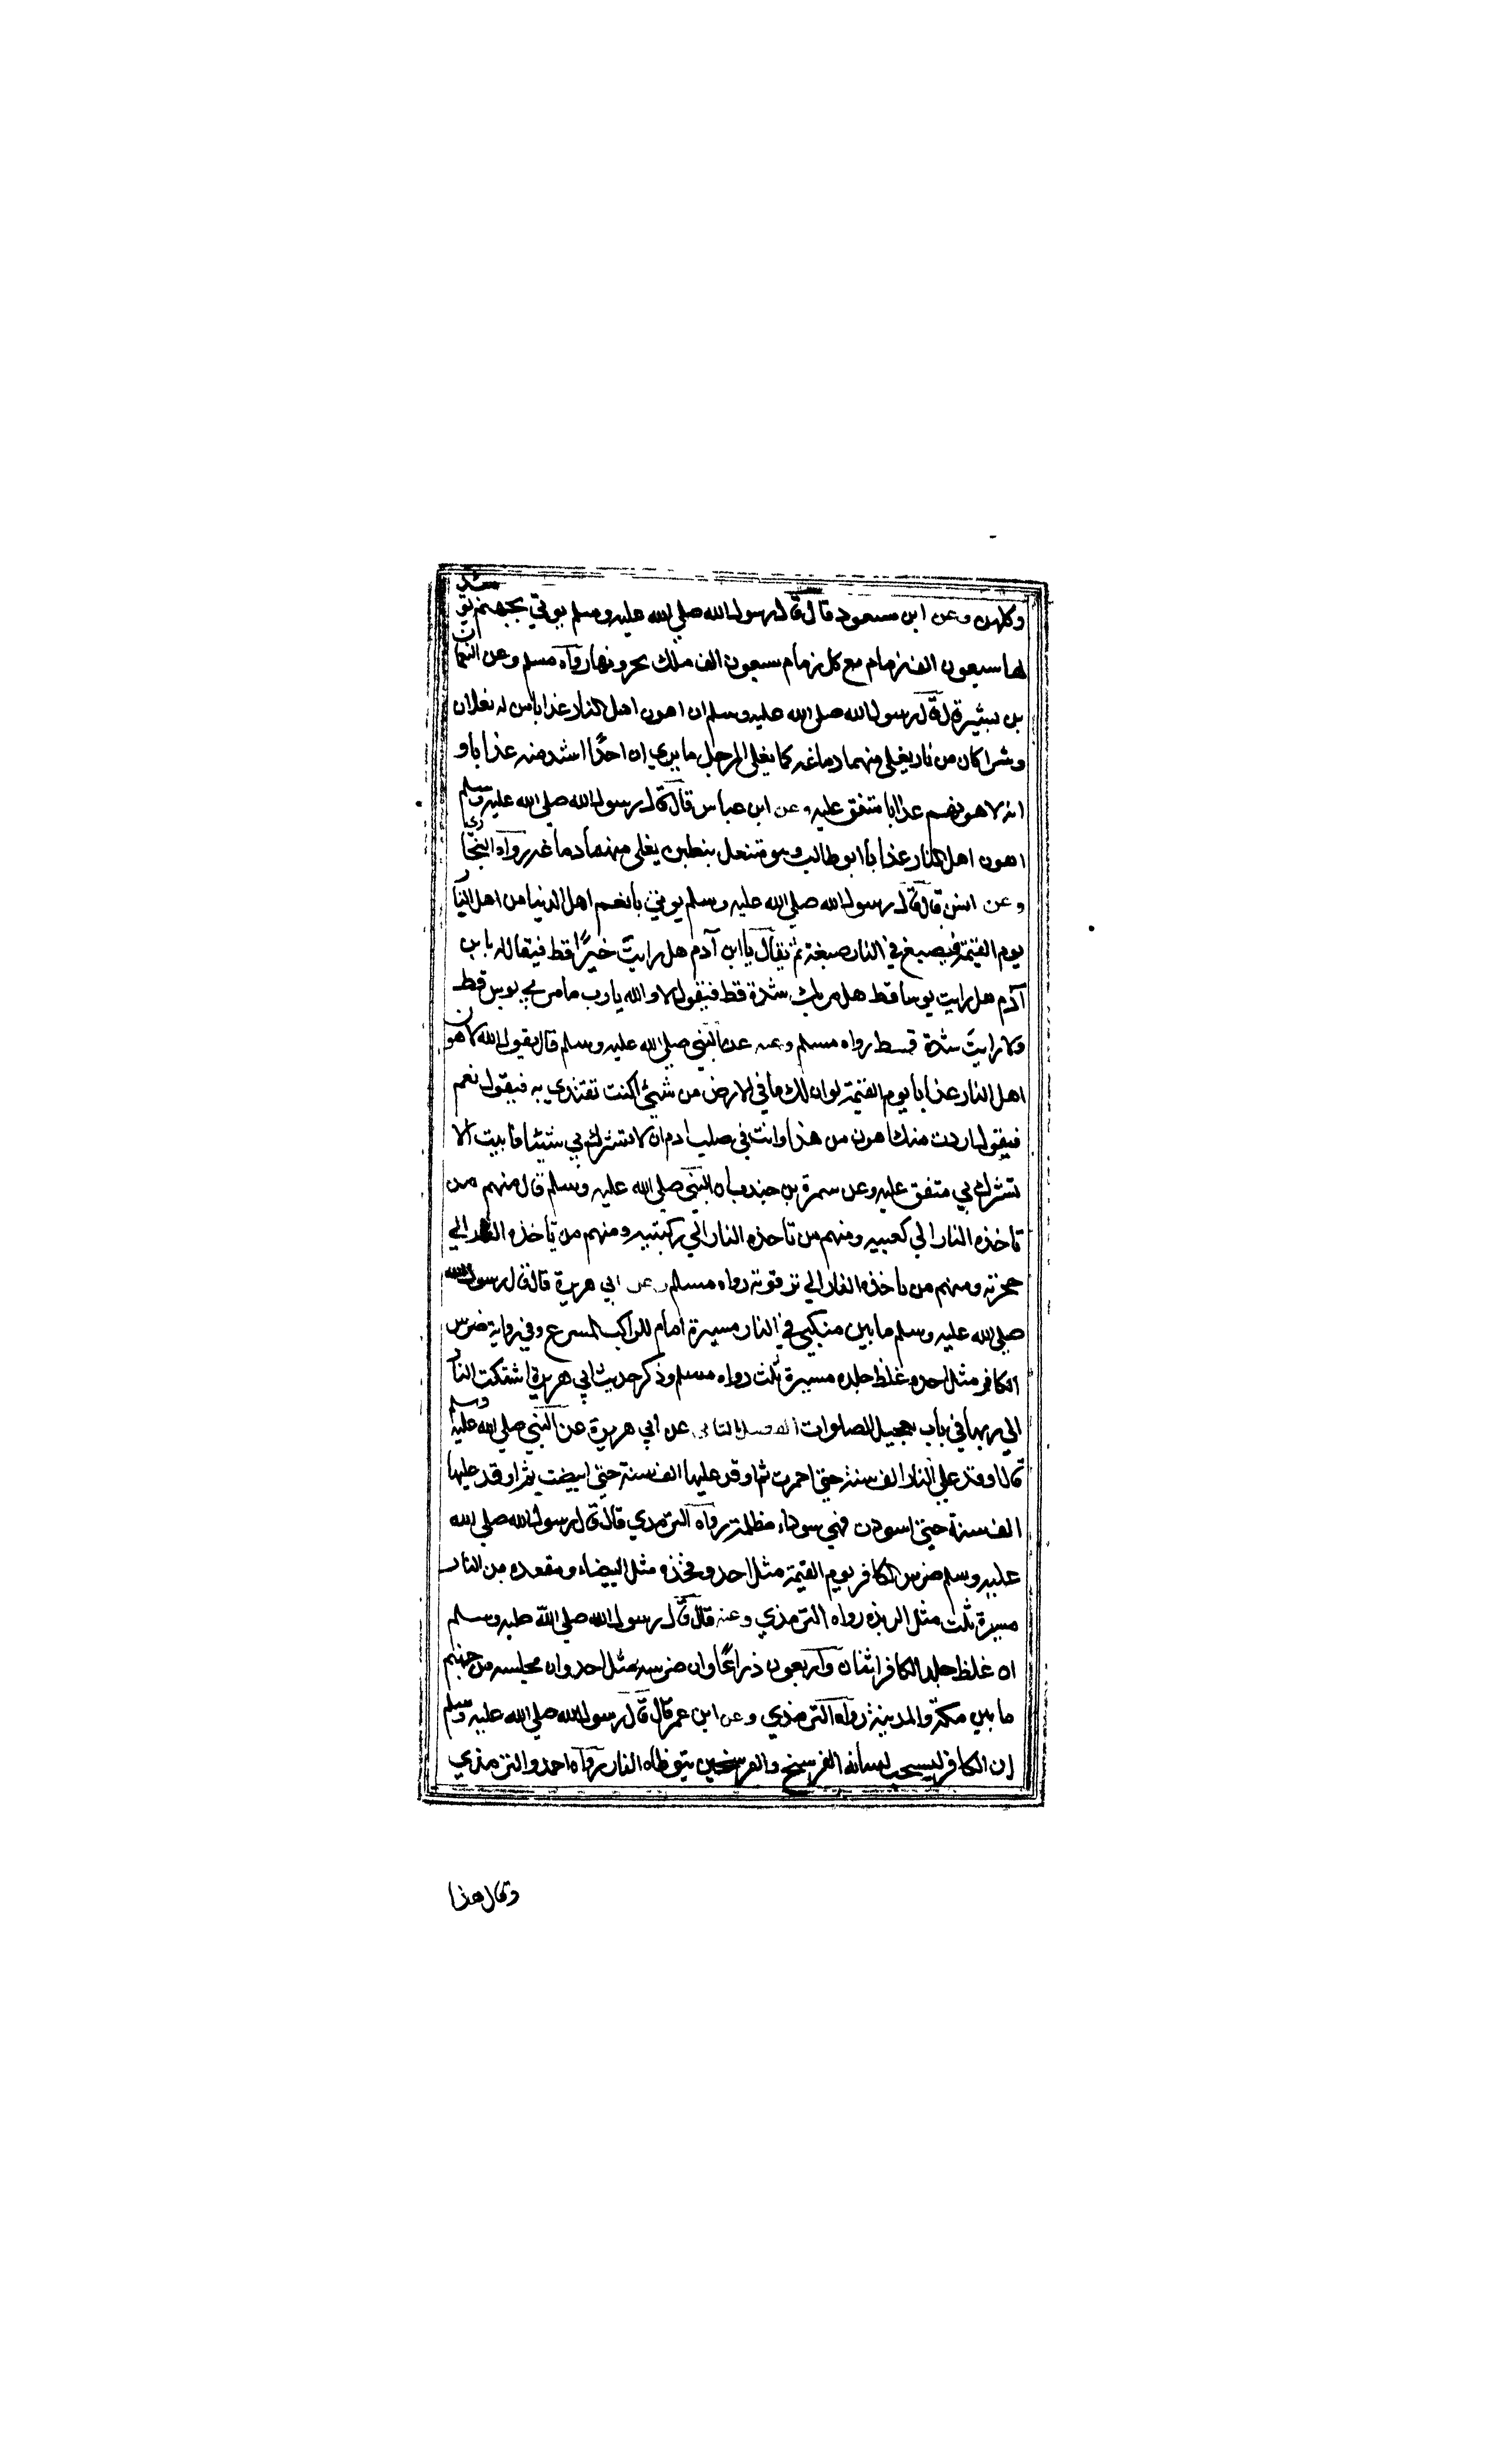 وكلهن وعن ابن مسعود قال قال رسول الله صلي الله عليه وسلم يوتي بجهنم يومئذ
لها سبعون الف زمام مع كل زمام سبعون الف ملك يجرونها رواه مسلم وعن النعمان
بن بشير قال قال رسول الله صلي الله عليه وسلم ان اهون اهل النار عذابا من له نعلان
وشراكان من نار يغلي منهما دماغه كما يغلي المرجل ما يري ان احدًا اشد منه عذابا و
انه لاهونهم عذابا متفق عليه وعن ابن عباس قال قال رسول الله صلي الله عليه وسلم
اهون اهل النار عذابا ابو طالب وهو متنعل بنعلين يغلي منهما دماغه رواه البخاري
وعن انس قال قال رسول الله صلي الله عليه وسلم يوتي بانعم اهل الدنيا من اهل النار
يوم القيمة فيصبغ في النار صبغة ثم يقال يا ابن آدم هل رايت خيرًا قط فيقال له يا بن
آدم هل رايت بوسا قط هل مر بك شدة قط فيقول لا والله يا رب ما مر بي بوس قط
ولا رايت شدة قط رواه مسلم وعنه عن النبي صلي الله عليه وسلم قال يقول الله لاهون
اهل النار عذابا يوم القيمة لو ان لك ما في الارض من شيئ اكنت تفتدي به فيقول نعم
فيقول اردت منك اهون من هذا وانت في صلب ادم ان لا تشرك بي شيئا فابيت الا
تشرك بي متفق عليه وعن سمرة بن جندب ان النبي صلي الله عليه وسلم قال منهم من
تاخذه النار الي كعبيه ومنهم من تاخذه النار الي ركبتيه ومنهم من تاخذه النار الي
حجزته ومنهم من تاخذه النار الي ترقوته رواه مسلم وعن ابي هريرة قال قال رسول الله
صلي الله عليه وسلم ما بين منكبي في النار مسيرة امام للراكب المسرع وفي رواية ضرس
الكافر مثل احد وغلظ جلده مسيرة ثلث رواه مسلم وذكر حديث ابي هريرة اشتكت النار
الي ربها في باب تعجيل الصلوات الفصل الثاني عن ابي هريرة عن النبي صلي الله عليه وسلم
قال اوقد علي النار الف سنة حتي احمرت ثم اوقد عليها الف سنة حتي ابيضت ثم اوقد عليها
الف سنة حتي اسودت فهي سوداء مظلمة رواه الترمذي قال قال رسول الله صلي الله
عليه وسلم ضرس الكافر يوم القيمة مثل احد وفخذه مثل البيضاء ومقعده من النار
مسيرة ثلث مثل الربذه رواه الترمذي وعنه قال قال رسول الله صلي الله عليه وسلم
ان غلظ جلد الكافر اثنان واربعون ذراعًا وان ضرسه مثل احد وان مجلسه من جهنم
ما بين مكة والمدينة رواه الترمذي وعن ابن عمر قال قال رسول الله صلي الله عليه وسلم
ان الكافر ليسحب لسانه الفرسخ والفرسخين يتوطاه النار رواه احمد والترمذي
وقال هذا